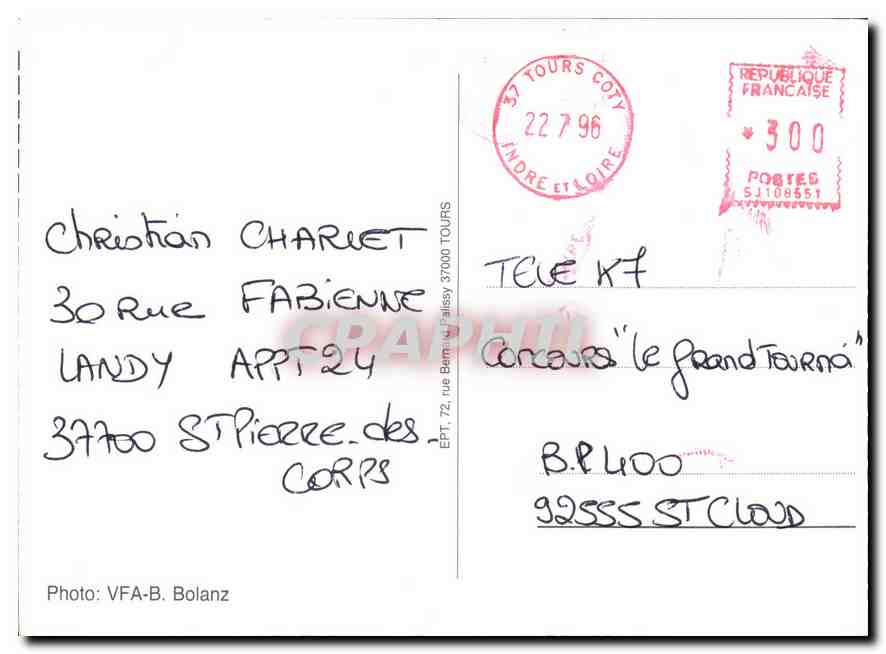 37 TOURS COTY
22 7 96
INDRE ET LOIRE
REPUBLIQUE
FRANCAISE
* 300
POSTES
SJ108551
Christian CHARLET
30 Rue FABIENNE
LANDY APPT 24
37700 ST PIERRE-des-
CORPS
EPT, 72, rue Bernard Palissy 37000 TOURS
TELE K7
Concours "le grand
B.P. 400
92555 ST CLOUD
CPAPHIL
Photo: VFA-B. Bolanz